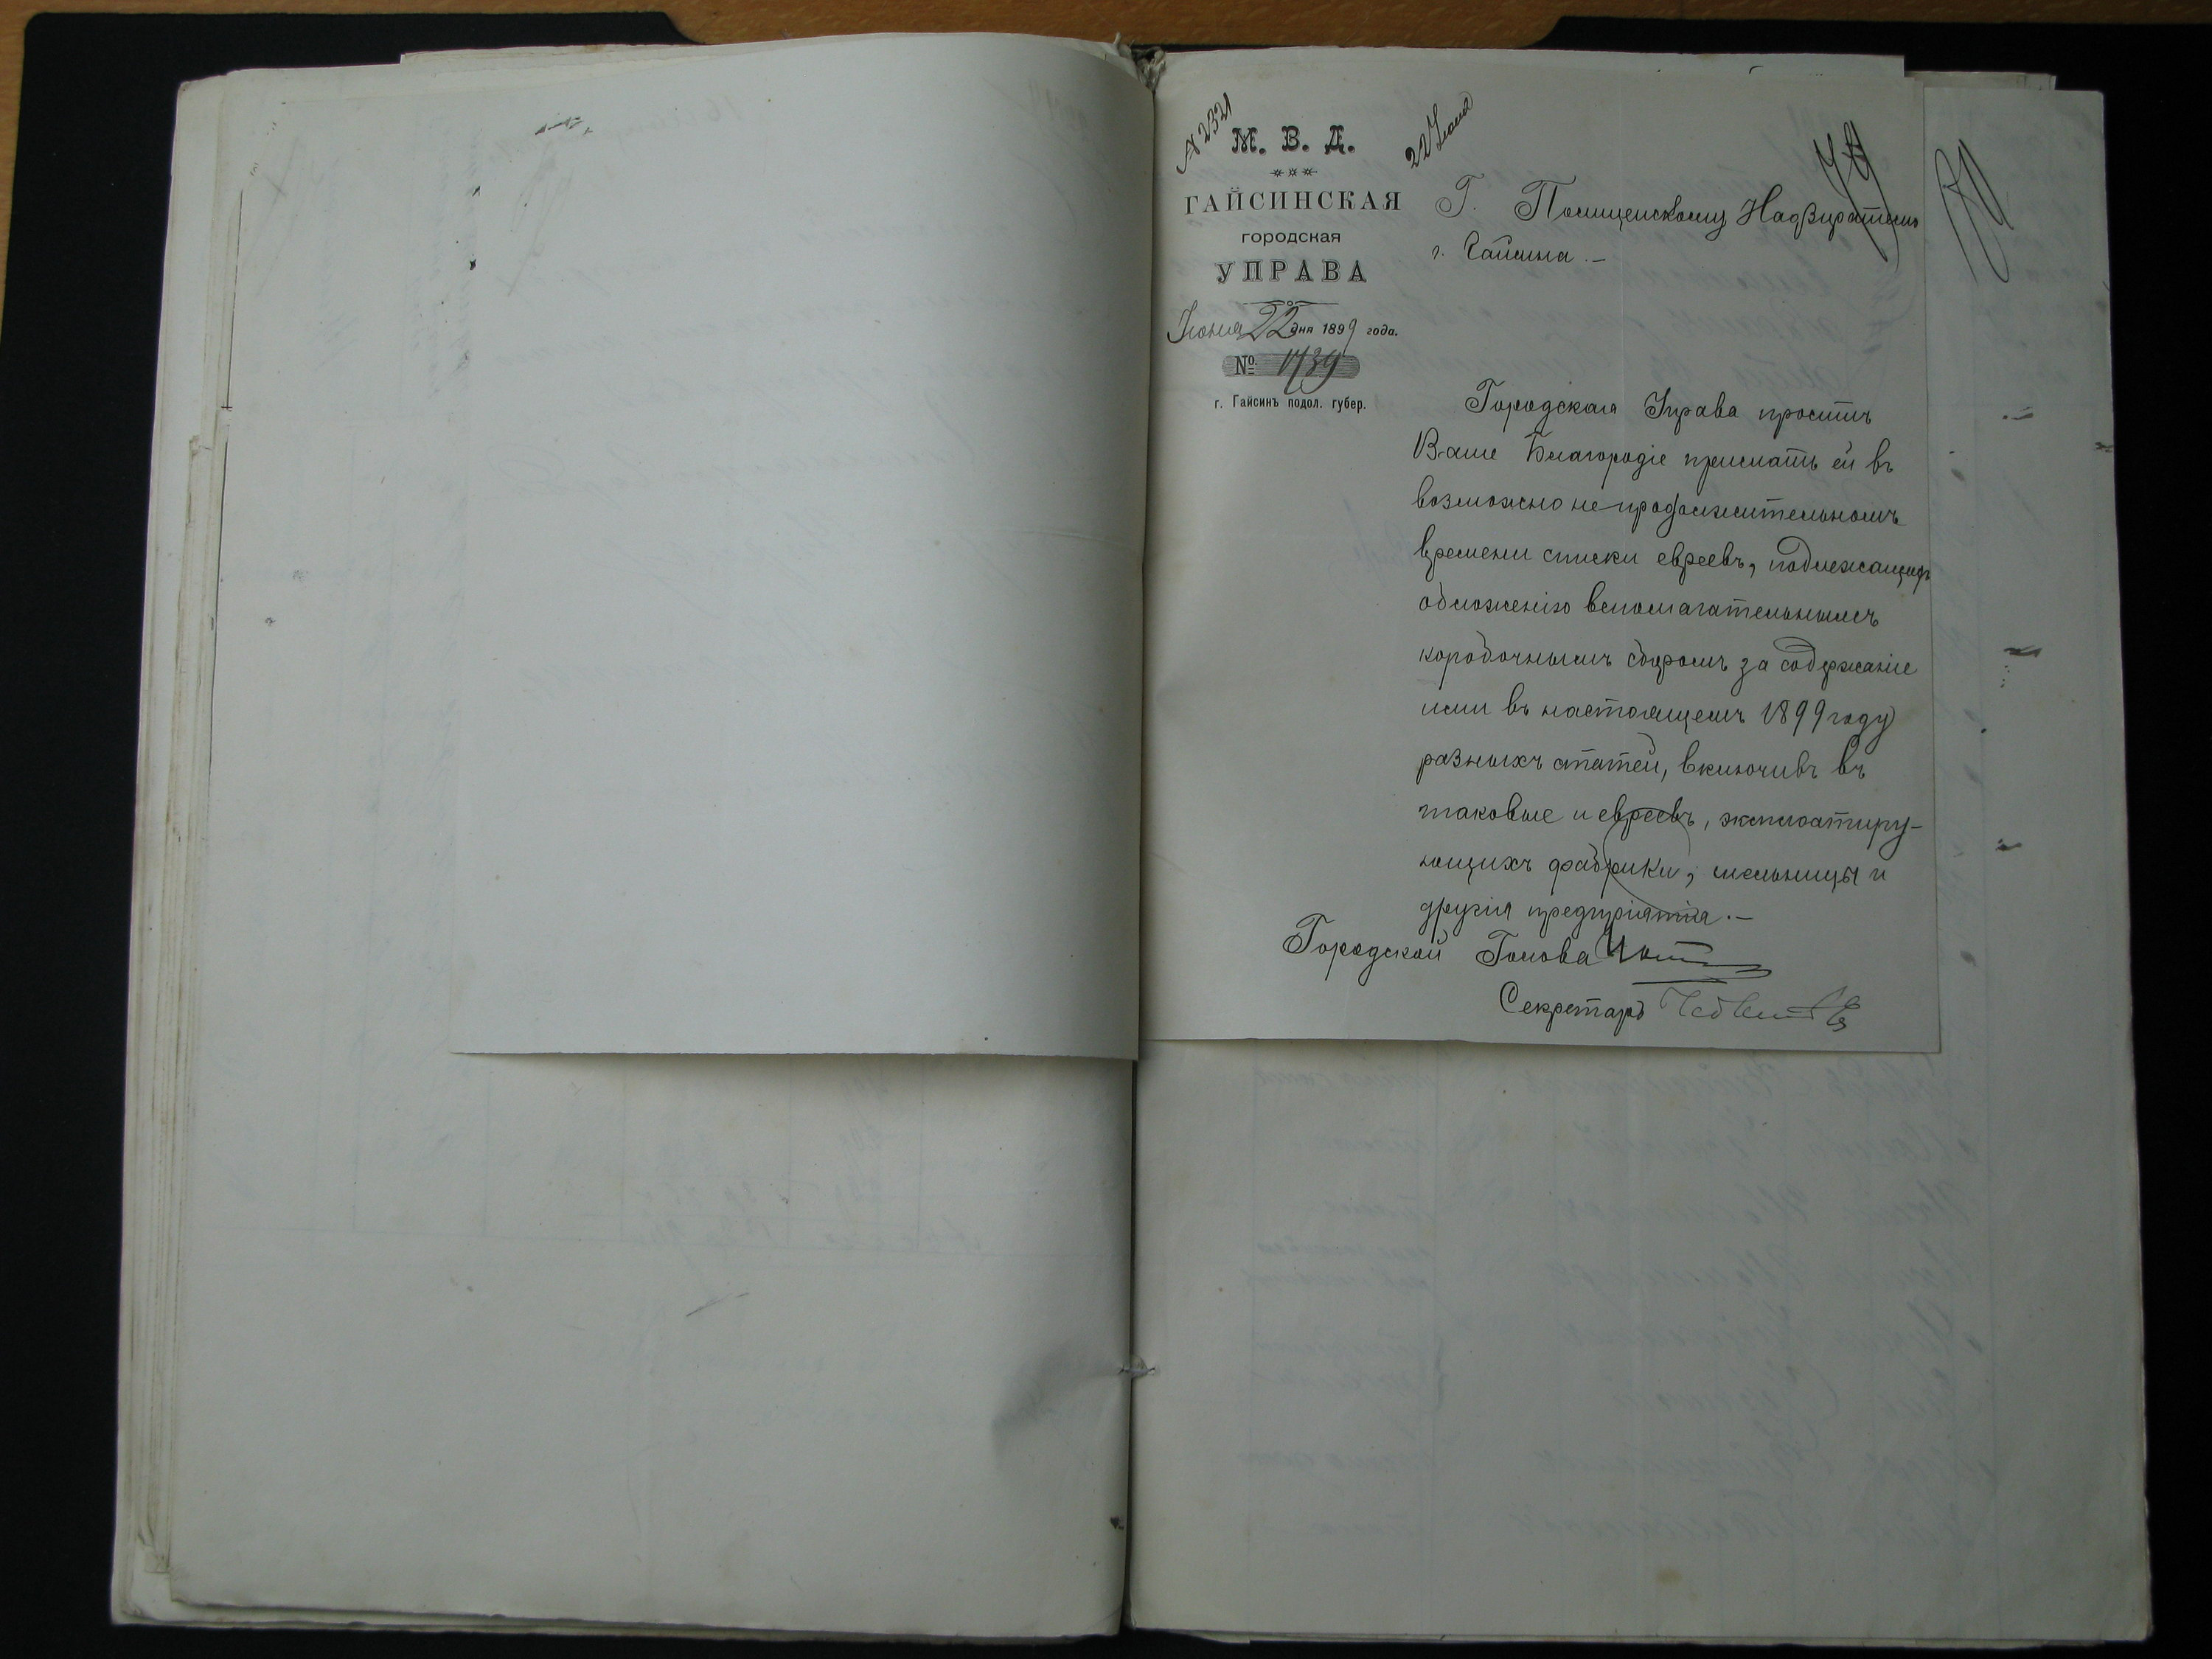 N 2321
М. В. Д.
ГАЙСИНСКАЯ
городская
УПРАВА
Іюня 22 дня 1899 года.
№ 1739
г. Гайсинъ подол. губер.
22 Іюня
Г. Полицейскому Надзирателю
г. Гайсина.–
Городская Управа проситъ
Ваше Благородіе прислать ей въ
возможно непродолжительномъ
времени списки евреевъ, подлежащихъ
обложенію вспомагательнымъ
коробочнымъ сборомъ за содержаніе
ими въ настоящемъ 1899 году
разныхъ статей, включивъ въ
таковые и евреевъ, эксплоатиру-
ющихъ фабрики, мельницы и
другія предпріятія.–
Городской Голова
Секретарь